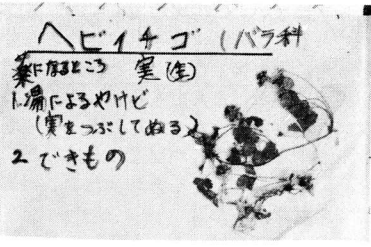 ヘビイチゴ (バラ科
薬になるところ 実(生)
1.湯によるやけど
(実をつぶしてぬる)
2.できもの